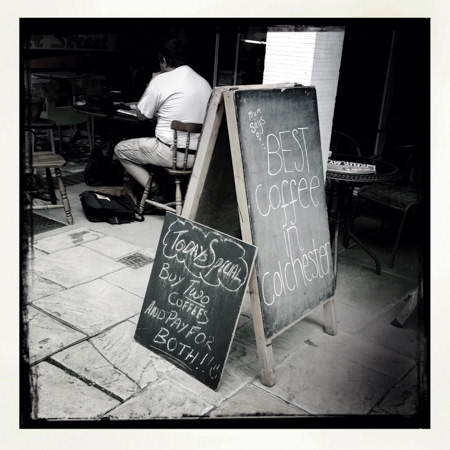 Mum
Says
So..
BEST
Coffee
in
Colchester
Today's Special
BUY TWO
COFFEES
AND PAY FOR
BOTH!!